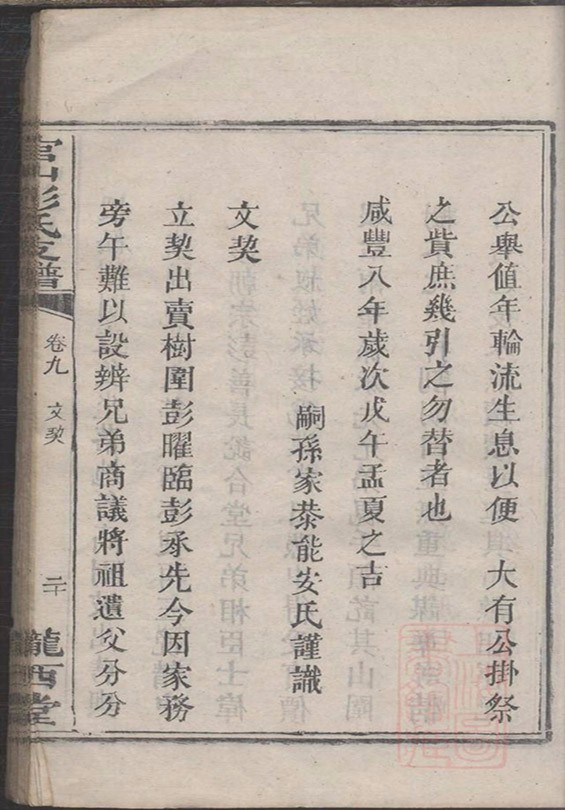 公舉值年輪流生息以便 大有公掛祭
之貲庶幾引之勿替者也
咸豐八年歲次戊午孟夏之吉
嗣孫家恭能安氏謹識
文契
立契出賣樹圍彭曜臨彭承先今因家務
旁午難以設辨兄弟商議將祖遺父分分
官山彭氏支譜
卷九 文契
二十
隴西堂